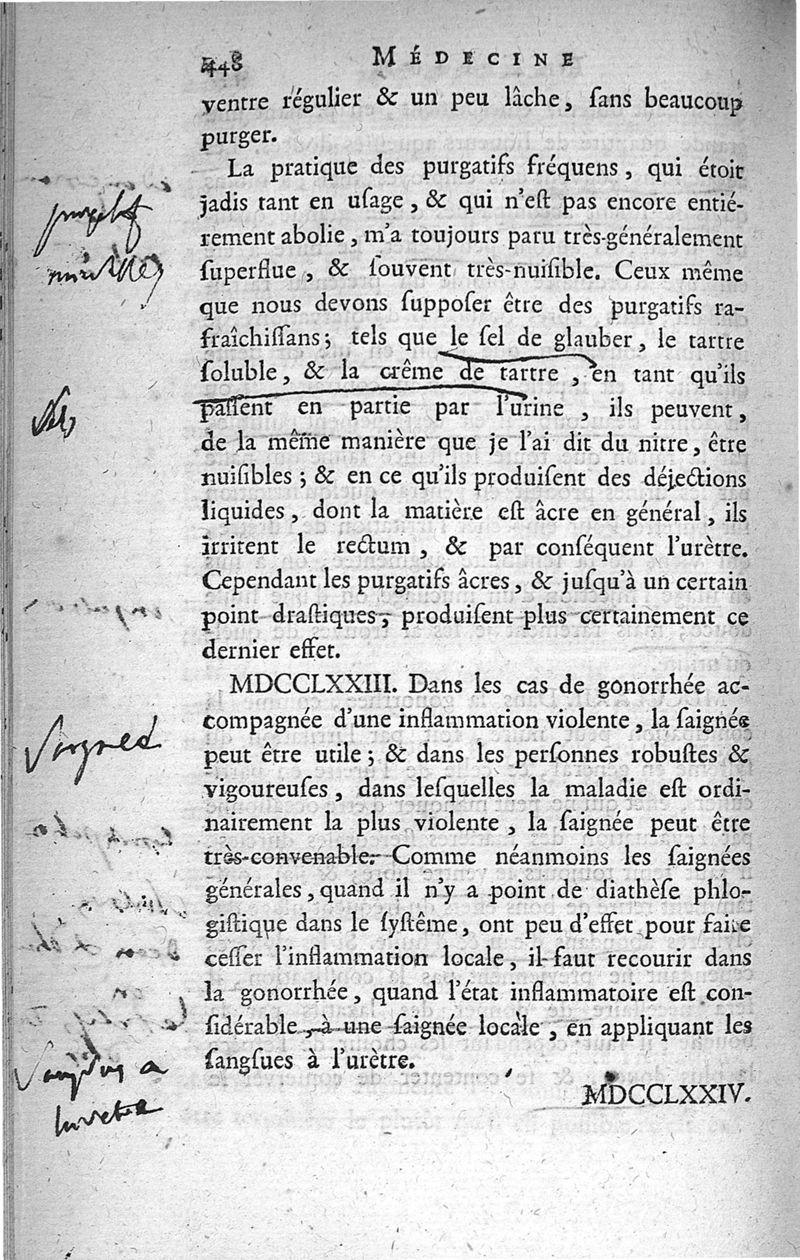 448 MÉDECINE
ventre régulier & un peu lâche, ſans beaucoup
purger.
La pratique des purgatifs fréquens, qui étoit
jadis tant en uſage, & qui n'eſt pas encore entié-
rement abolie, m'a toujours paru très-généralement
ſuperflue, & ſouvent très-nuiſible. Ceux même
que nous devons ſuppoſer être des purgatifs ra-
fraîchiſſans; tels que le ſel de glauber, le tartre
ſoluble, & la crême de tartre, en tant qu'ils
paſſent en partie par l'urine, ils peuvent,
de la même manière que je l'ai dit du nitre, être
nuiſibles; & en ce qu'ils produiſent des déjections
liquides, dont la matière eſt âcre en général, ils
irritent le rectum, & par conſéquent l'urètre.
Cependant les purgatifs âcres, & juſqu'à un certain
point draſtiques, produiſent plus certainement ce
dernier effet.
MDCCLXXIII. Dans les cas de gonorrhée ac-
compagnée d'une inflammation violente, la ſaignée
peut être utile; & dans les perſonnes robuſtes &
vigoureuſes, dans leſquelles la maladie eſt ordi-
nairement la plus violente, la ſaignée peut être
très-convenable. Comme néanmoins les ſaignées
générales, quand il n'y a point de diathèſe phlo-
giſtique dans le ſyſtême, ont peu d'effet pour faire
ceſſer l'inflammation locale, il faut recourir dans
la gonorrhée, quand l'état inflammatoire eſt con-
ſidérable, à une ſaignée locale, en appliquant les
ſangſues à l'urètre.
MDCCLXXIV.